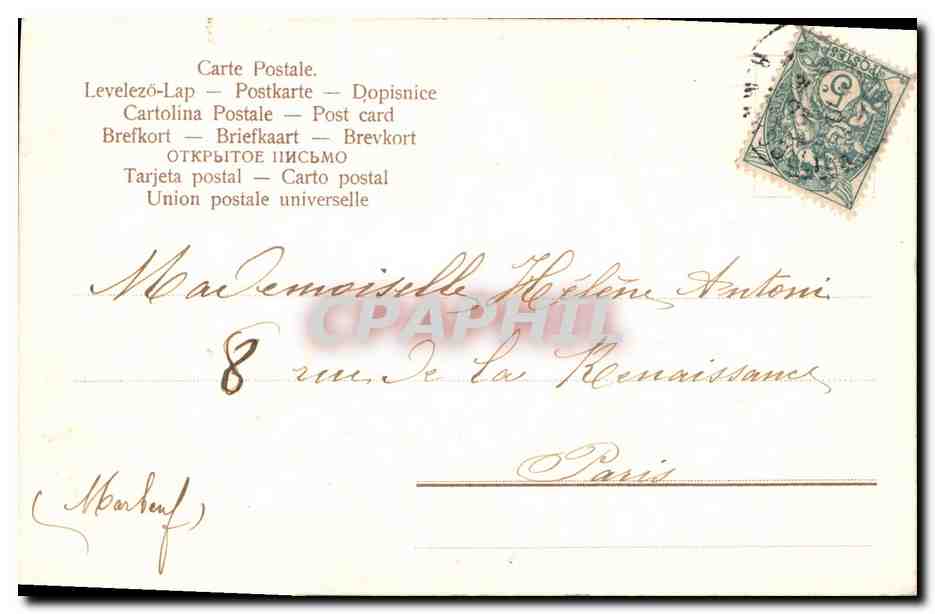 Carte Postale.
Levelező-Lap — Postkarte — Dopisnice
Cartolina Postale — Post card
Brefkort — Briefkaart — Brevkort
ОТКРЫТОЕ ПИСЬМО
Tarjeta postal — Carto postal
Union postale universelle
POSTES
5
Mademoiselle Hélène Antoni
CPAPHIL
8 rue de la Renaissance
Paris
(Marbeuf)